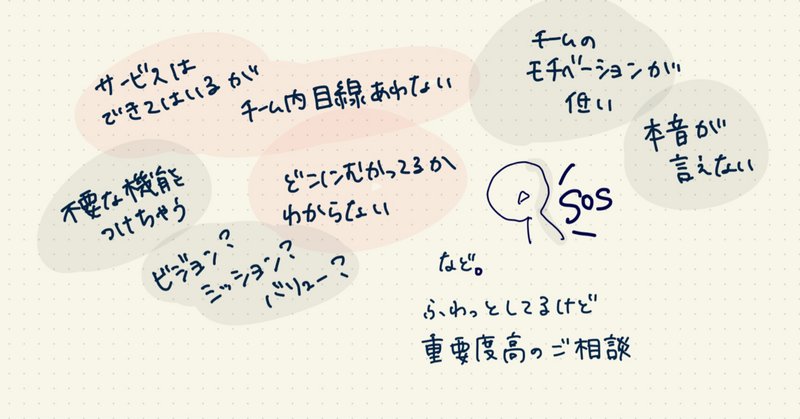 サービスは
できてはいるが
チーム内目線あわない
チームの
モチベーションが
低い
本音が
言えない
不要な機能を
つけちゃう
どこにむかってるか
わからない
ビジョン?
ミッション?
バリュー?
SOS
など。
ふわっとしてるけど
重要度高のご相談